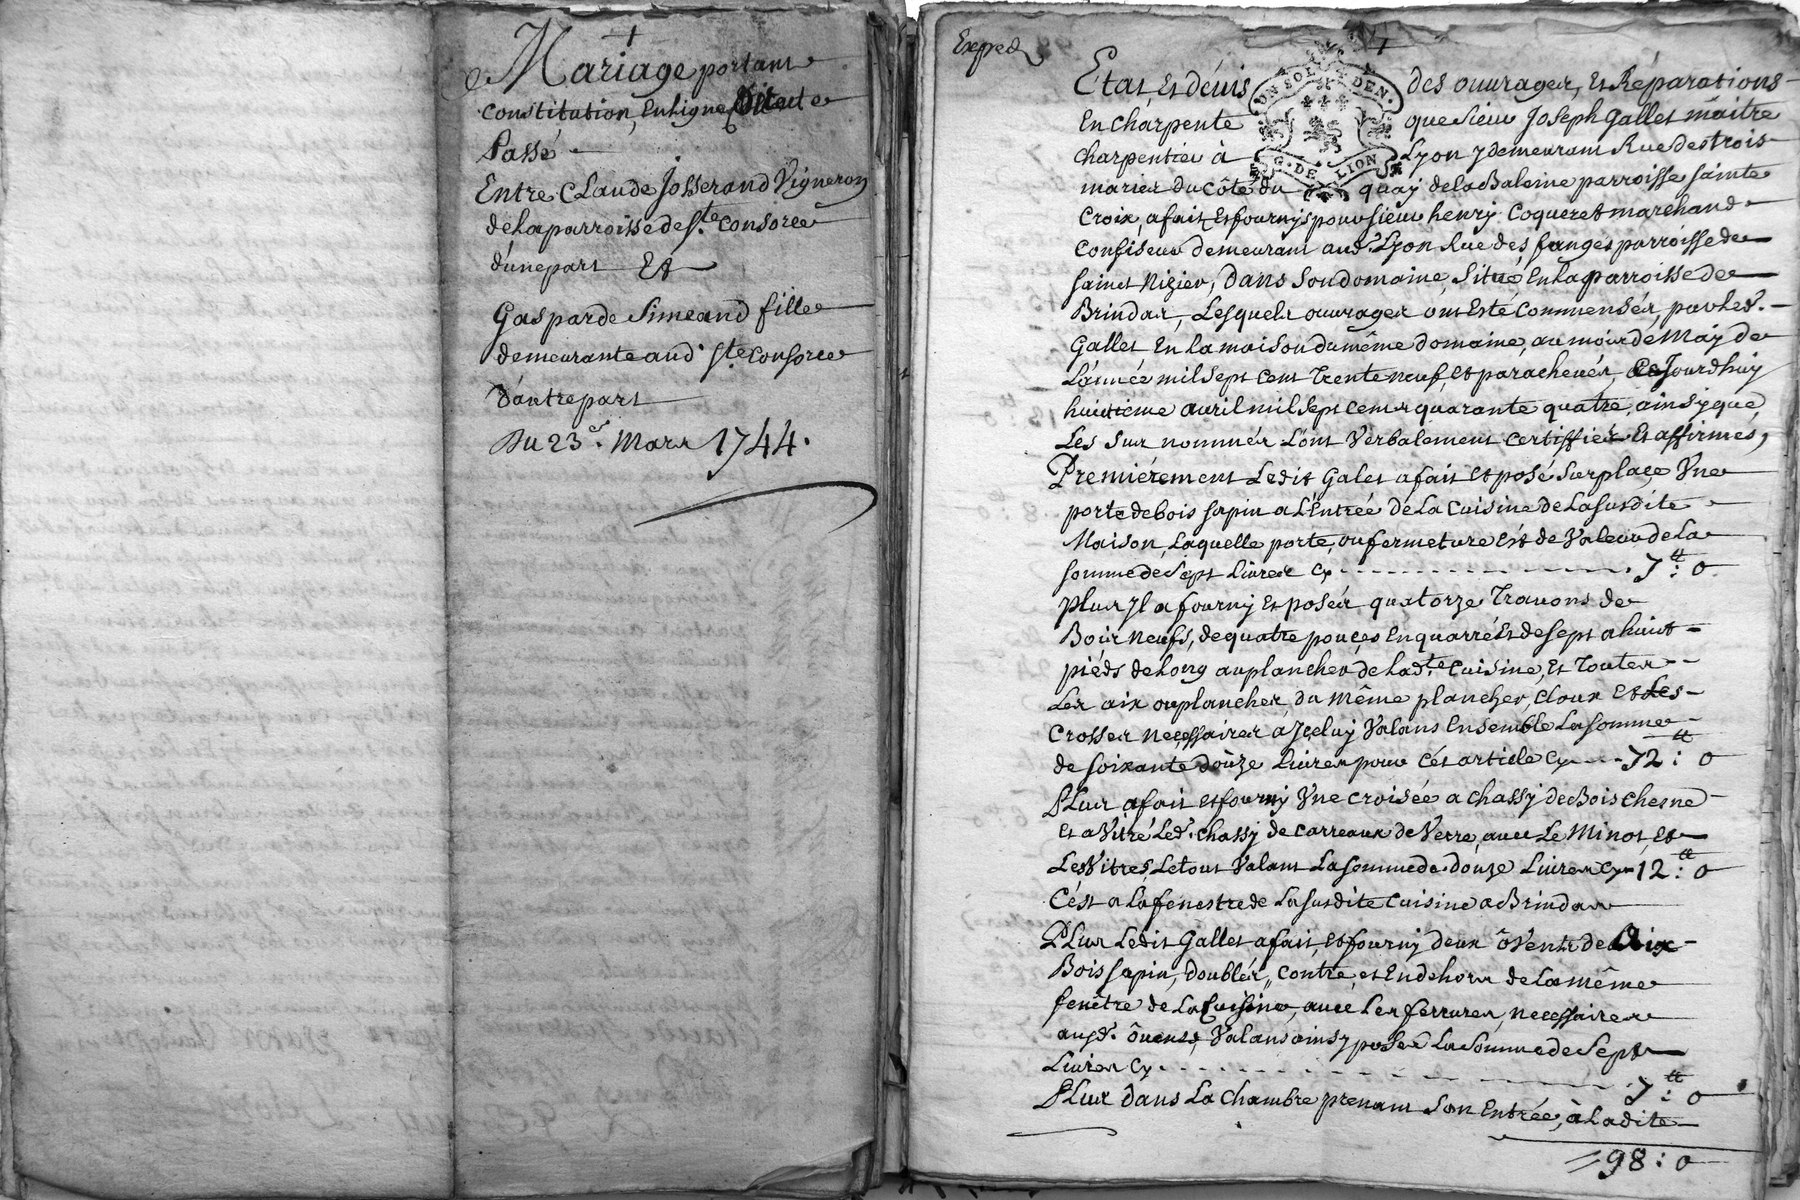 Mariage portant
constitution, en ligne directe
Passé
Entre Claude Josserand Vigneron
de la parroisse de Ste. Consorce
d'une part Et
Gasparde Simeand fille
demeurante aud. Ste. Consorce
d'autre part
Du 23e. Mars 1744.
Exped
Etat, et dévis des ouvrages, et Réparations
En charpente que sieur Joseph Gallet maître
charpentier à Lyon y demeurant Rue des trois
maries du côté du quay de la Baleine parroisse sainte
Croix, a fait et fournys pour sieur henry Coqueret marchand
Confiseur demeurant aud. Lyon Rue des fanges parroisse de
saint Nizier, dans son domaine, situé en la parroisse de
Brindas, Lesquels ouvrages ont esté commensés, par led.
Gallet En la maison du même domaine, au mois de May de
L'année mil sept cent trente neuf, et parachevés, ce Jourdhuy
huitième avril mil sept cents quarante quatre, ainsy que
Les sus nommés L'ont Verbalement certiffiés et affirmés,
Premiérement Ledit Galet a fait et posé sur place Une
porte de bois sapin a L'Entrée de la Cuisine de La susdite
Maison, Laquelle porte, ou fermeture est de Valeur de La
somme de sept Livres Cy 7tt : 0
Plus Jl a fourny et posés quatorze travons de
Bois neufs, de quatre pouces en quarré et de sept a huit
piéds de long au plancher de lad.te Cuisine, et toutes
Les aix ou plancher, du même plancher, cloux et Les
Crosses necessaires a Jceluy Valans Ensemble La somme
de soixante douze Livres pour cét article Cy 72tt : 0
Plus a fait et fourny Une croisée a chassy de Bois chesne
et a Vitré Led. chassy de carreaux de Verre, avec Le Minot, et
Les Vitres, Le tout Valant La somme de douze Livres Cy 12tt : 0
C'ést a La fenestre de La susdite Cuisine a Brindas
Plus Ledit Gallet a fait, et fourny deux ôvents de Aix
Bois sapin, doublés, contre, et En dehors de La même
fenêtre de La Cuisine, avec Les ferrures, necessaires
auxd. ôvents, Valans ainsy posés La somme de sept
Livres Cy 7tt : 0
Plus dans La Chambre prenant son Entrée, à Ladite
98 : 0
UN SOL DEN.
G. DE LION